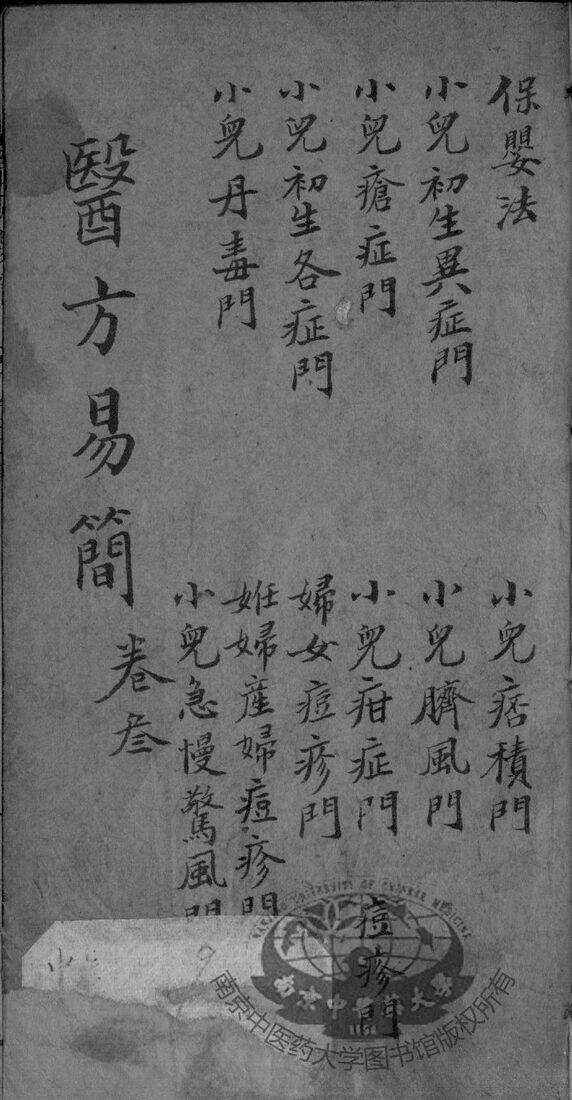 保嬰法
小兒初生異症門
小兒瘡症門
小兒初生各症門
小兒丹毒門
小兒痞積門
小兒臍風門
小兒疳症門
痘疹門
婦女痘疹門
姙婦產婦痘疹門
小兒急慢驚風門
醫方易簡
卷叁
9
NANJING UNIVERSITY OF CHINESE MEDICINE
南京中醫藥大學
南京中医药大学图书馆版权所有